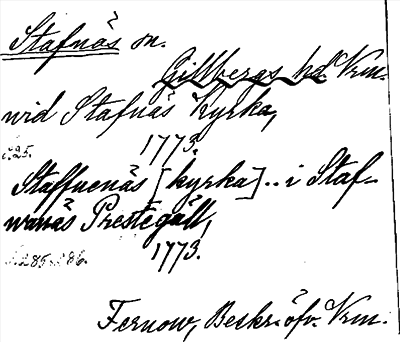 Stafnäs sn.
Gillbergs hd. Vrm.
wid Stafnäs kyrka,
1773.
s. 25.
Staffnenäs [kyrka]... i Staf-
wanäs Prestegäll,
1773.
s. 285-286.
Fernow, Beskr. öfv. Vrm.